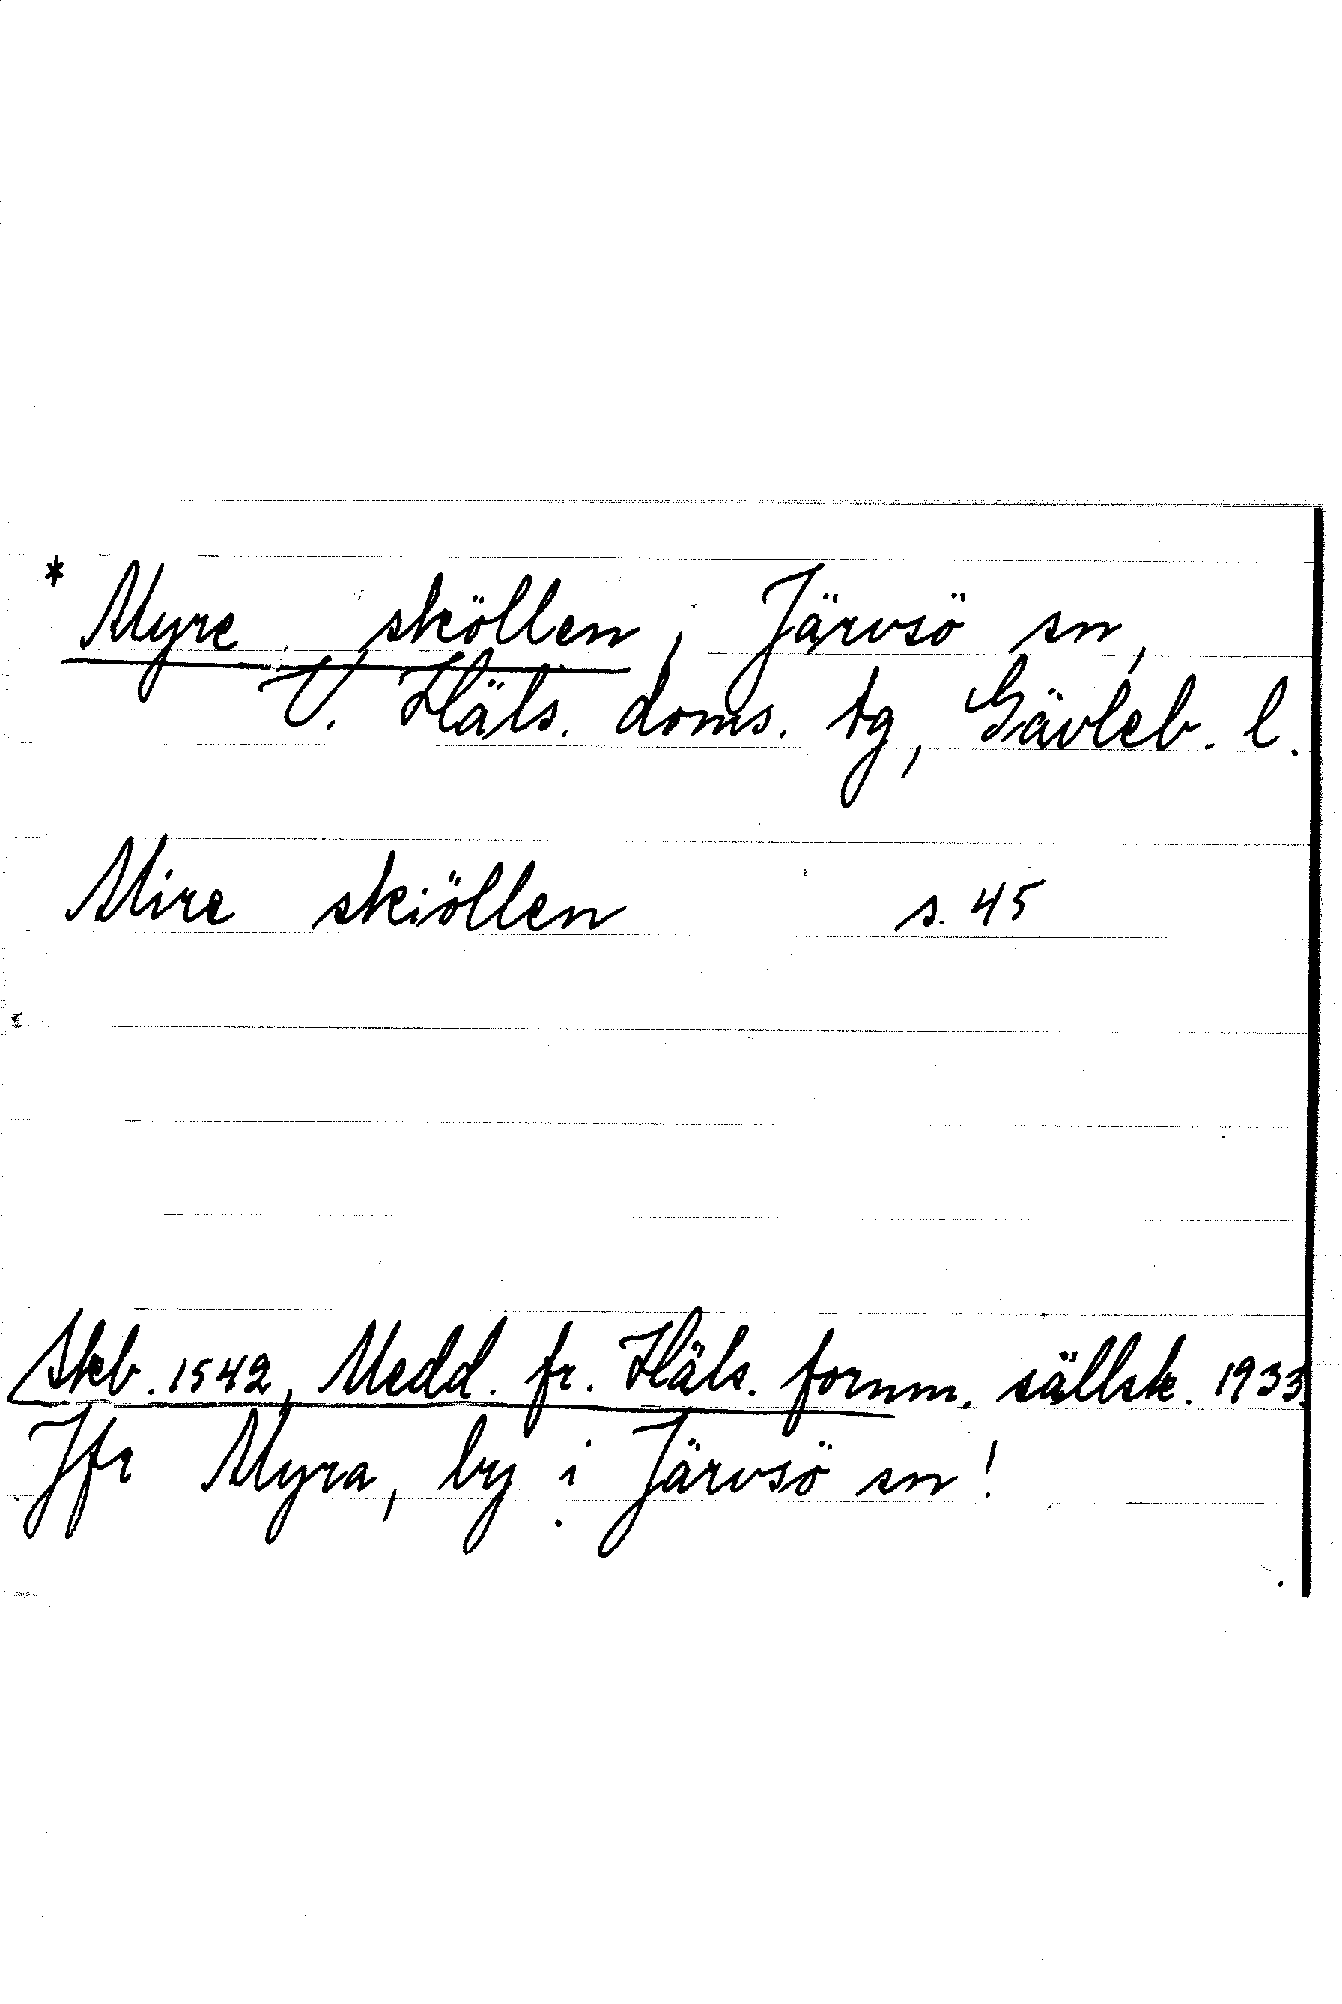 * Myre sköllen, Järvsö sn,
V. Häls. doms. tg, Gävleb. l.
Mire skiöllen s. 45
Skb. 1542, Medd. fr. Häls. fornm. sällsk. 1933.
Jfr Myra, by i Järvsö sn!